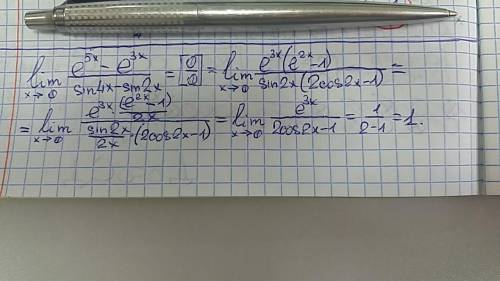 lim x→0 (e^{5x} − e^{3x})/(sin4x − sin2x) = [0/0] = lim x→0 (e^{3x}(e^{2x} −1))/(sin2x(2cos2x−1)) =
= lim x→0 (e^{3x} (e^{2x}−1)/2x)/(sin2x/2x (2cos2x−1)) = lim x→0 e^{3x}/(2cos2x−1) = 1/(2−1) = 1.